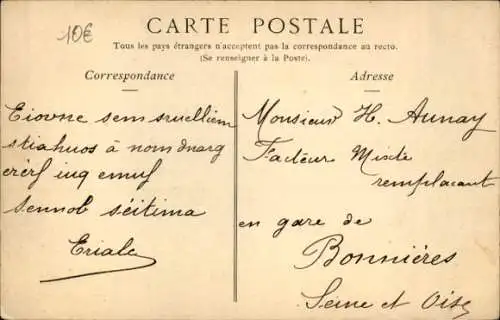 10€
CARTE POSTALE
Tous les pays étrangers n'acceptent pas la correspondance au recto.
(Se renseigner à la Poste).
Correspondance
Adresse
Eiovne sem sruelliem
stiahuos à nom dnarg
erèrf iuq emuf
sennob séitima
Eriale
Monsieur H. Aunay
Facteur Mixte
remplaçant
en gare de
Bonnières
Seine et Oise